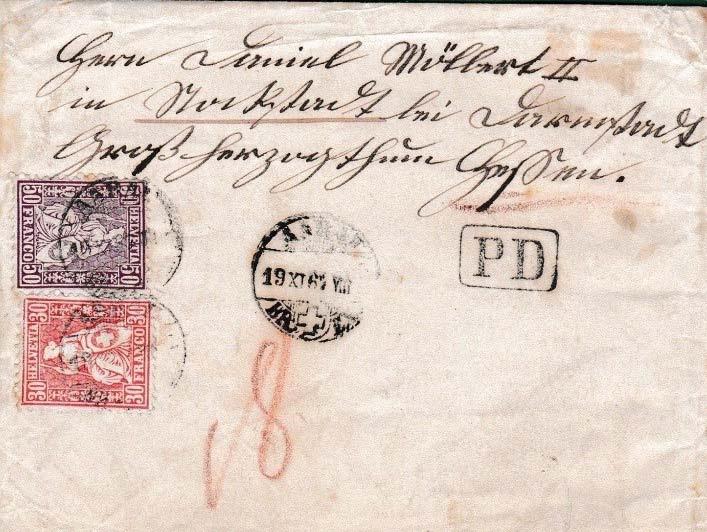 Herrn Daniel Möllert II
in Stockstadt bei Darmstadt
Großherzogthum Hessen.
50 FRANCO 50 HELVETIA 50
AARAU
19 XI 67 VIII
PD
30 HELVETIA 30 FRANCO 30